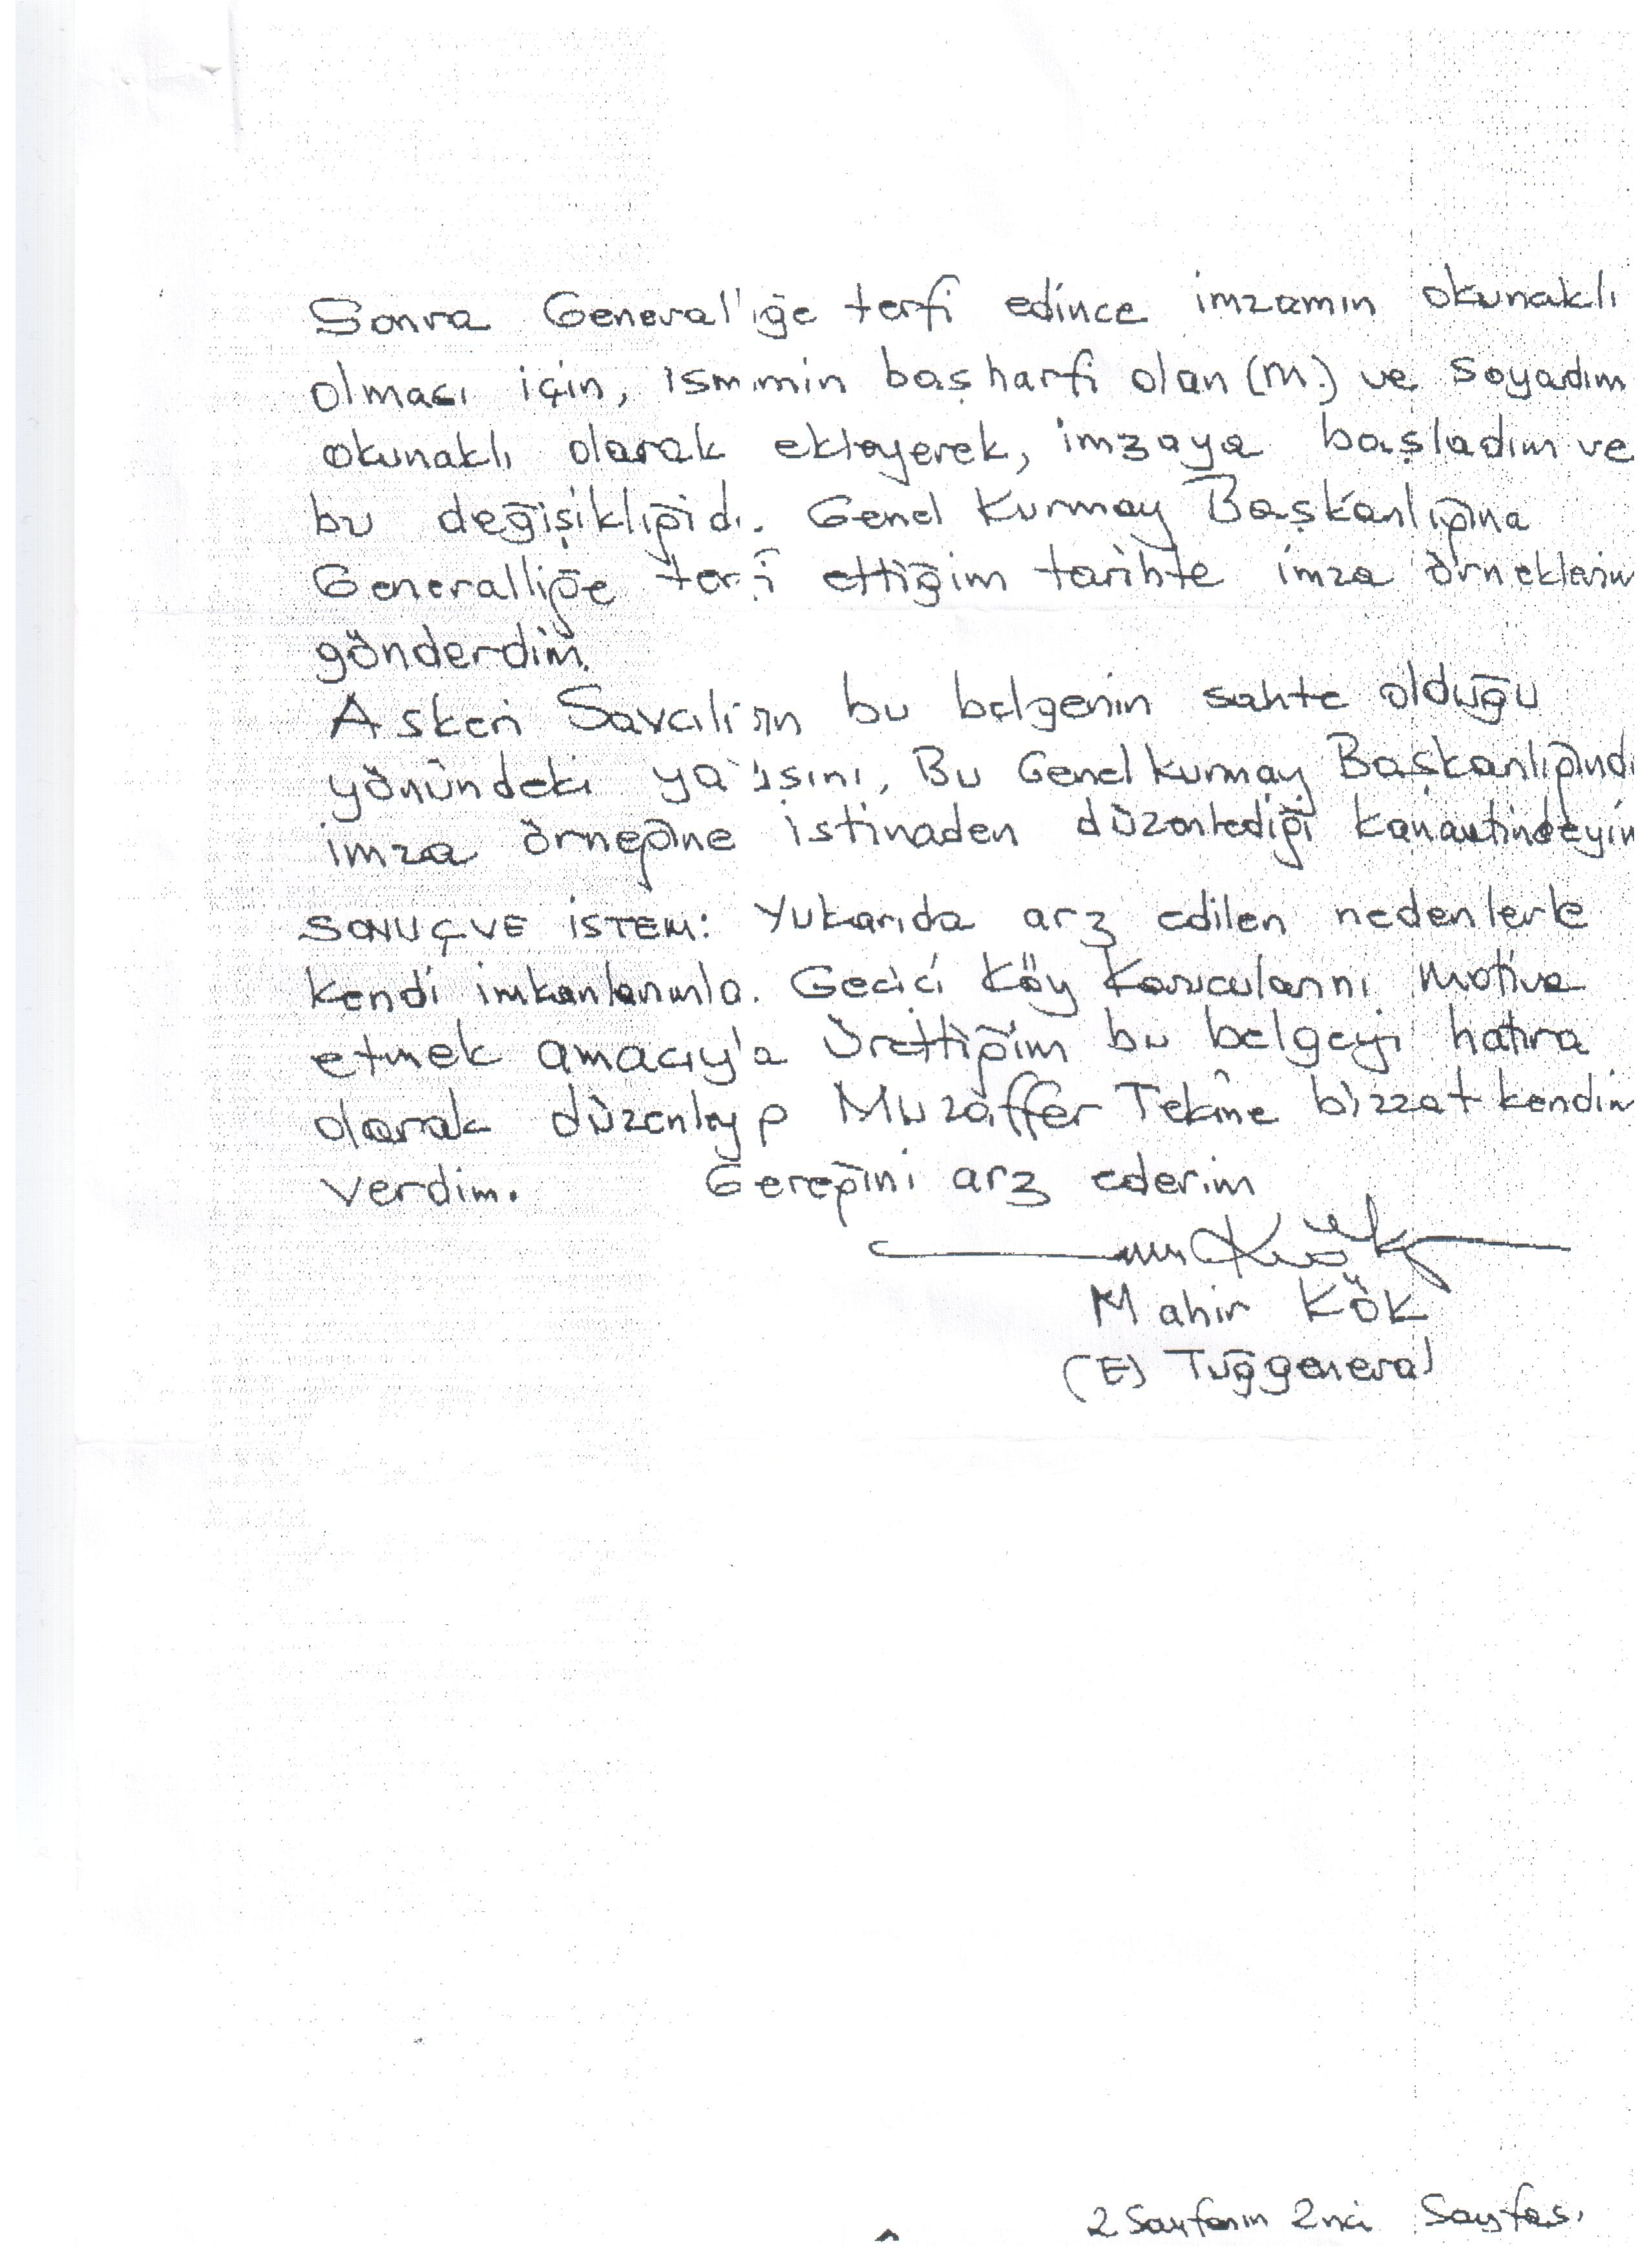 Sonra General'iğe terfi edince imzamın okunaklı
olması için, ismimin başharfi olan (M.) ve Soyadım
okunaklı olarak ekleyerek, imzaya başladım ve
bu değişikliğidi. Genel Kurmay Başkanlığına
Generalliğe terfi ettiğim tarihte imza örneklerim
gönderdim.
Askeri Savcılı'ğın bu belgenin sahte olduğu
yönündeki yazısını, Bu Genelkurmay Başkanlığınd
imza örneğine istinaden düzenlediği kanaatindeyim
SONUÇ VE İSTEM: Yukarıda arz edilen nedenlerle
kendi imkanlarımla. Gecici Köy Korucularını Motive
etmek amacıyla Ürettiğim bu belgeyi hatıra
olarak düzenleyp Muzaffer Tekine bizzat kendim
verdim. Gereğini arz ederim
Mahir KÖK
(E) Tuğgeneral
2 Sayfanın 2nci Sayfası